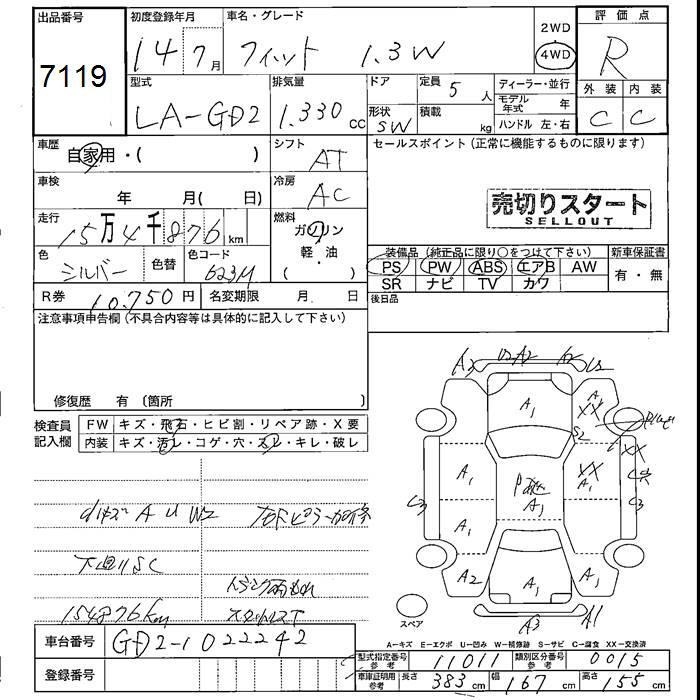 出品番号
7119
初度登録年月
14年7月
車名・グレード
フィット 1.3W
2WD
4WD
評価点
R
外装 内装
C C
型式
LA-GD2
排気量
1.330cc
ドア
形状
SW
定員 5人
積載 kg
ディーラー・並行
モデル年式 年
ハンドル 左・右
車歴
自家用・( )
シフト
AT
セールスポイント(正常に機能するものに限ります)
売切りスタート
SELLOUT
車検
年 月( 日)
冷房
AC
走行
15万4千876km
燃料
ガソリン
軽・油
色
シルバー
色替
色コード
623M
装備品(純正品に限り○をつけて下さい)
PS PW ABS エアB AW
SR ナビ TV カワ
新車保証書
有・無
R券 10.750円
名変期限 月 日
後日品
注意事項申告欄(不具合内容等は具体的に記入して下さい)
修復歴 有(箇所 )
検査員記入欄
FW キズ・飛石・ヒビ割・リペア跡・X要
内装 キズ・汚レ・コゲ・穴・スレ・キレ・破レ
A U W2
下廻りSC
トランク雨もれ
154876km
スタットレス
A2 U2 A2 A2 U2
A1
A
XX
S2
XX
A1
A1
XX
A1
P
A1
A1
A2
A1
A1
A3
A1
スペア
A-キズ E-エクボ U-凹み W-補修跡 S-サビ C-腐食 XX-交換済
車台番号
GD2-1022242
登録番号
型式指定番号 参考 11011
類別区分番号 参考 0015
車庫証明用 参考 長さ 383cm 幅 167cm 高さ 155cm